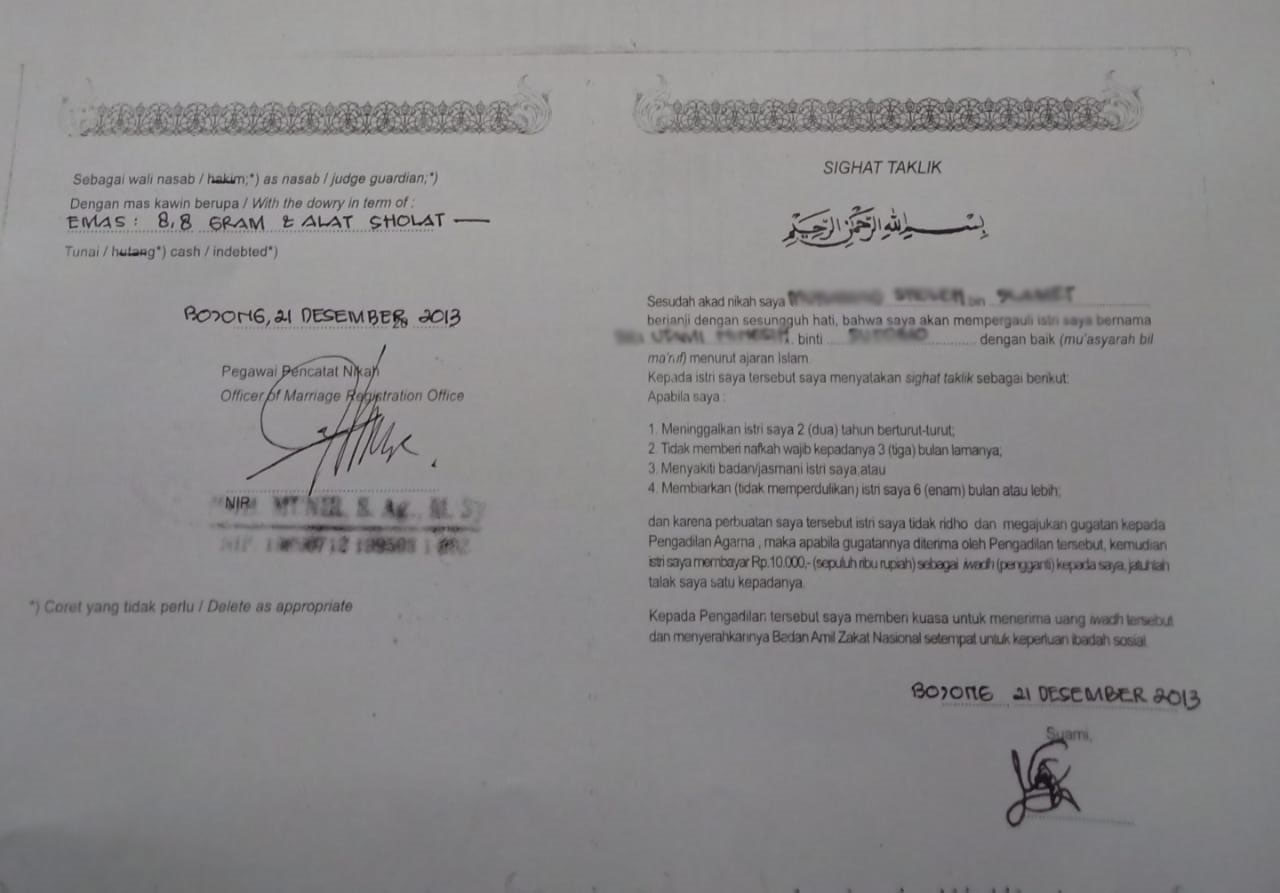 Sebagai wali nasab / hakim;*) as nasab / judge guardian;*)
Dengan mas kawin berupa / With the dowry in term of :
EMAS : 8,8 GRAM & ALAT SHOLAT —
Tunai / hutang*) cash / indebted*)
BOJONG, 21 DESEMBER 2013
20
Pegawai Pencatat Nikah
Officer of Marriage Registration Office
*) Coret yang tidak perlu / Delete as appropriate
SIGHAT TAKLIK
بِسْمِ اللهِ الرَّحْمٰنِ الرَّحِيْمِ
Sesudah akad nikah saya bin
berjanji dengan sesungguh hati, bahwa saya akan mempergauli istri saya bernama
binti dengan baik (mu'asyarah bil
ma'ruf) menurut ajaran Islam.
Kepada istri saya tersebut saya menyatakan sighat taklik sebagai berikut:
Apabila saya :
1. Meninggalkan istri saya 2 (dua) tahun berturut-turut;
2. Tidak memberi nafkah wajib kepadanya 3 (tiga) bulan lamanya;
3. Menyakiti badan/jasmani istri saya,atau
4. Membiarkan (tidak memperdulikan) istri saya 6 (enam) bulan atau lebih;
dan karena perbuatan saya tersebut istri saya tidak ridho dan megajukan gugatan kepada
Pengadilan Agama , maka apabila gugatannya diterima oleh Pengadilan tersebut, kemudian
istri saya membayar Rp.10.000,- (sepuluh ribu rupiah) sebagai iwadh (pengganti) kepada saya, jatuhlah
talak saya satu kepadanya.
Kepada Pengadilan tersebut saya memberi kuasa untuk menerima uang iwadh tersebut
dan menyerahkannya Badan Amil Zakat Nasional setempat untuk keperluan ibadah sosial.
BOJONG 21 DESEMBER 2013
Suami,